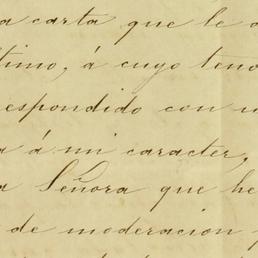 a carta que le
timo, á cuyo teno
espondido con
a á mi caracter,
a Señora que he
de moderacion